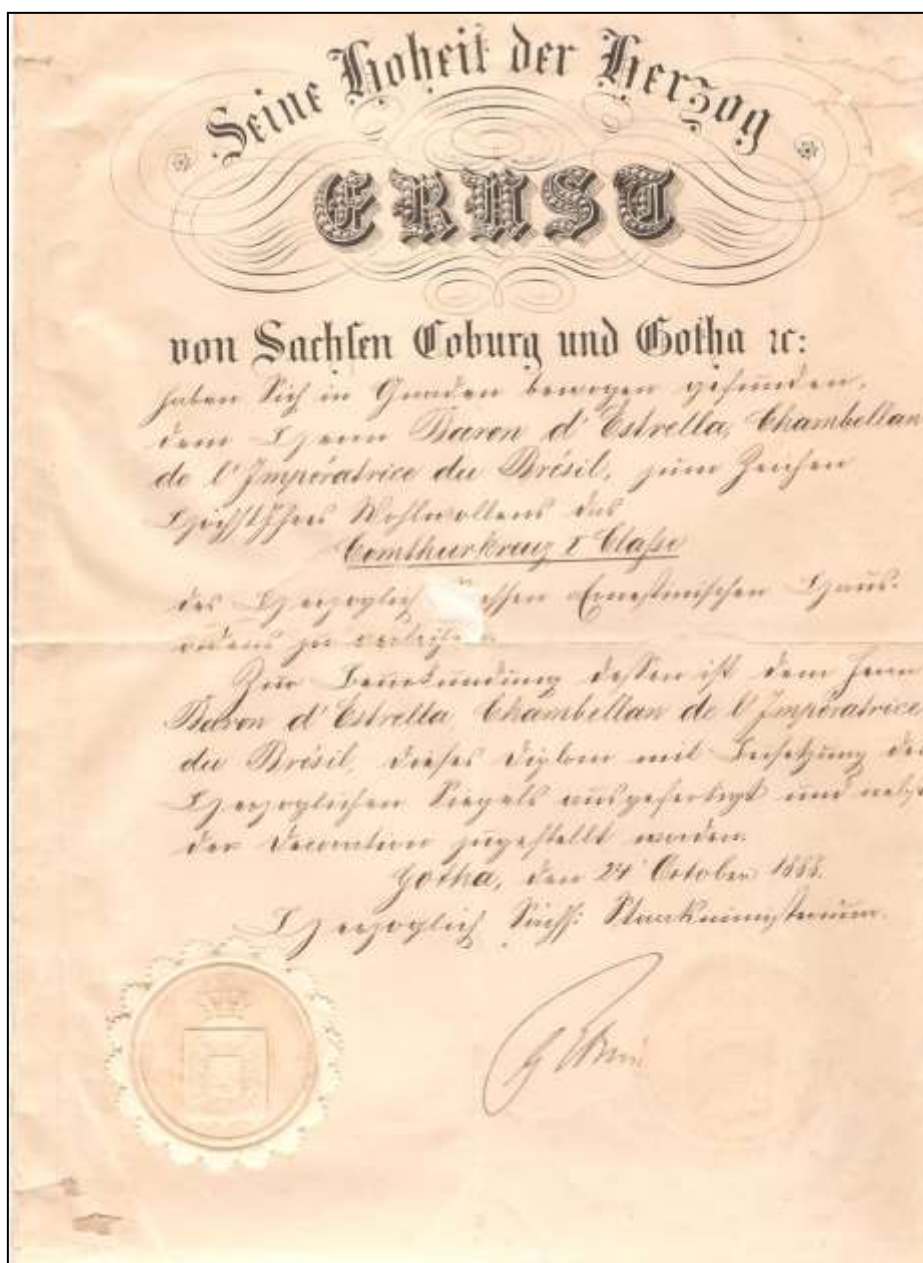 Seine Hoheit der Herzog
ERNST
von Sachsen Coburg und Gotha ꝛc:
haben Sich in Gnaden bewogen gefunden,
dem Herrn Baron d'Estrella, Chambellan
de l'Impératrice du Brésil, zum Zeichen
Höchstihres Wohlwollens das
Comthurkreuz I Classe
des Herzoglich Ernestinischen Haus-
ordens zu verleihen.
Zur Beurkundung dessen ist dem Herrn
Baron d'Estrella Chambellan de l'Impératrice
du Brésil, dieses Diplom mit Beisetzung des
Herzoglichen Siegels ausgefertigt und nebst
der Decoration zugestellt worden.
Gotha, den 24 October 1888.
Herzoglich Sächs: Staatsministerium.